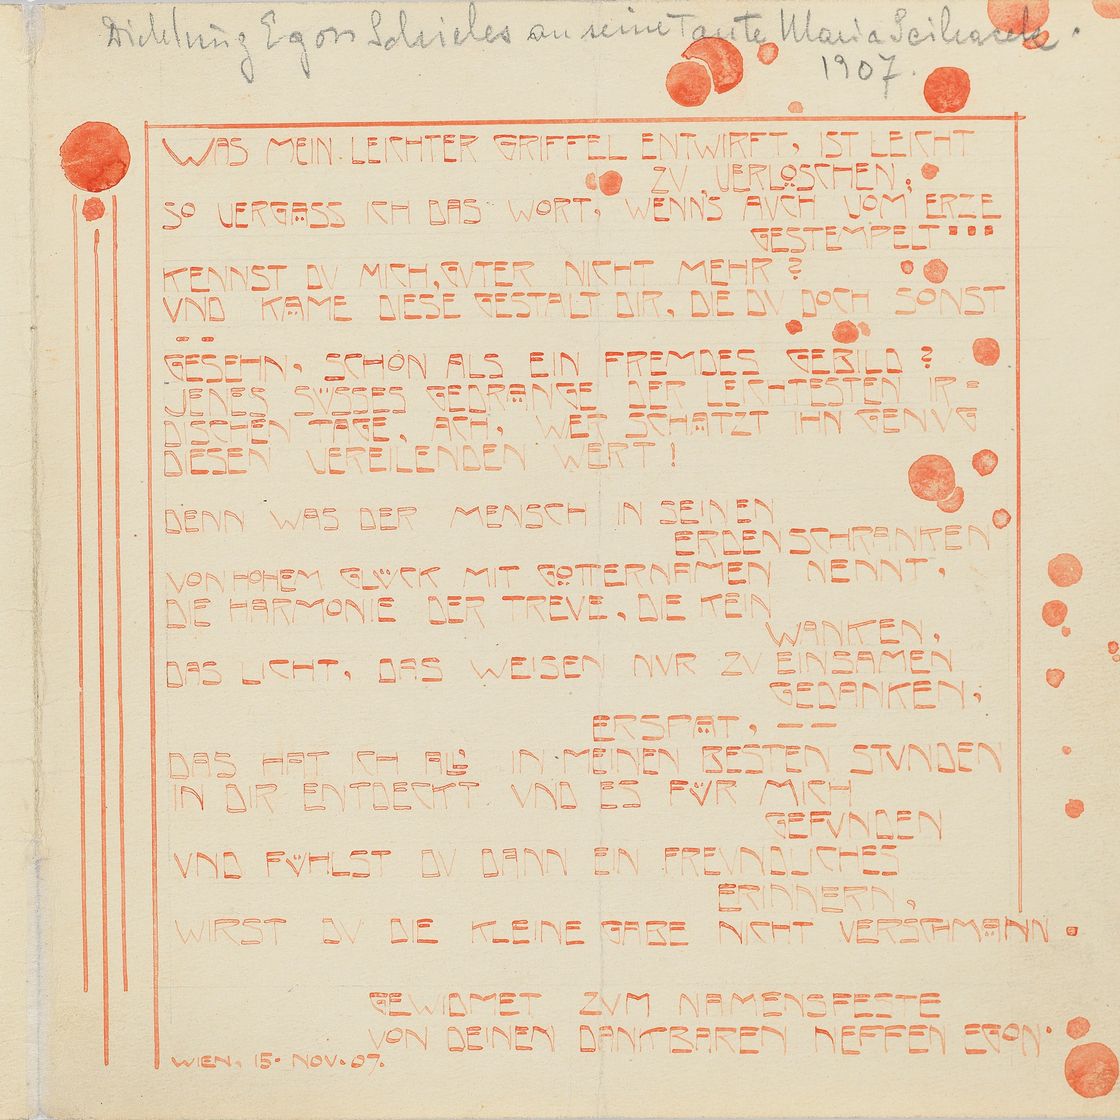 Dichtung Egon Schieles an seine Tante Maria
1907.
WAS MEIN LEICHTER GRIFFEL ENTWIRFT, IST LEICHT
ZV VERLÖSCHEN,
SO VERGÄSS ICH DAS WORT, WENN'S AVCH VOM ERZE
GESTEMPELT...
KENNST DV MICH, GVTER NICHT MEHR?
VND KÄME DIESE GESTALT DIR, DIE DV DOCH SONST
GESEHN, SCHON ALS EIN FREMDES GEBILD?
JENES SÜSSES GEDRÄNGE DER LEICHTESTEN IR=
DISCHEN TAGE, ACH, WER SCHÄTZT IHN GENVG
DIESEN VEREILENDEN WERT!
DENN WAS DER MENSCH IN SEINEN
ERDENSCHRANKEN
VON HOHEM GLÜCK MIT GÖTTERNAMEN NENNT,
DIE HARMONIE DER TREVE, DIE KEIN
WANKEN,
DAS LICHT, DAS WEISEN NVR ZV EINSAMEN
GEDANKEN,
ERSPÄT, — —
DAS HAT ICH ALL' IN MEINEN BESTEN STVNDEN
IN DIR ENTDECKT VND ES FÜR MICH
GEFVNDEN
VND FÜHLST DV DANN EIN FREVNDLICHES
ERINNERN,
WIRST DV DIE KLEINE GABE NICHT VERSCHMÄHN.
GEWIDMET ZVM NAMENSFESTE
VON DEINEN DANKBAREN NEFFEN EGON.
WIEN, 15. NOV. 07.